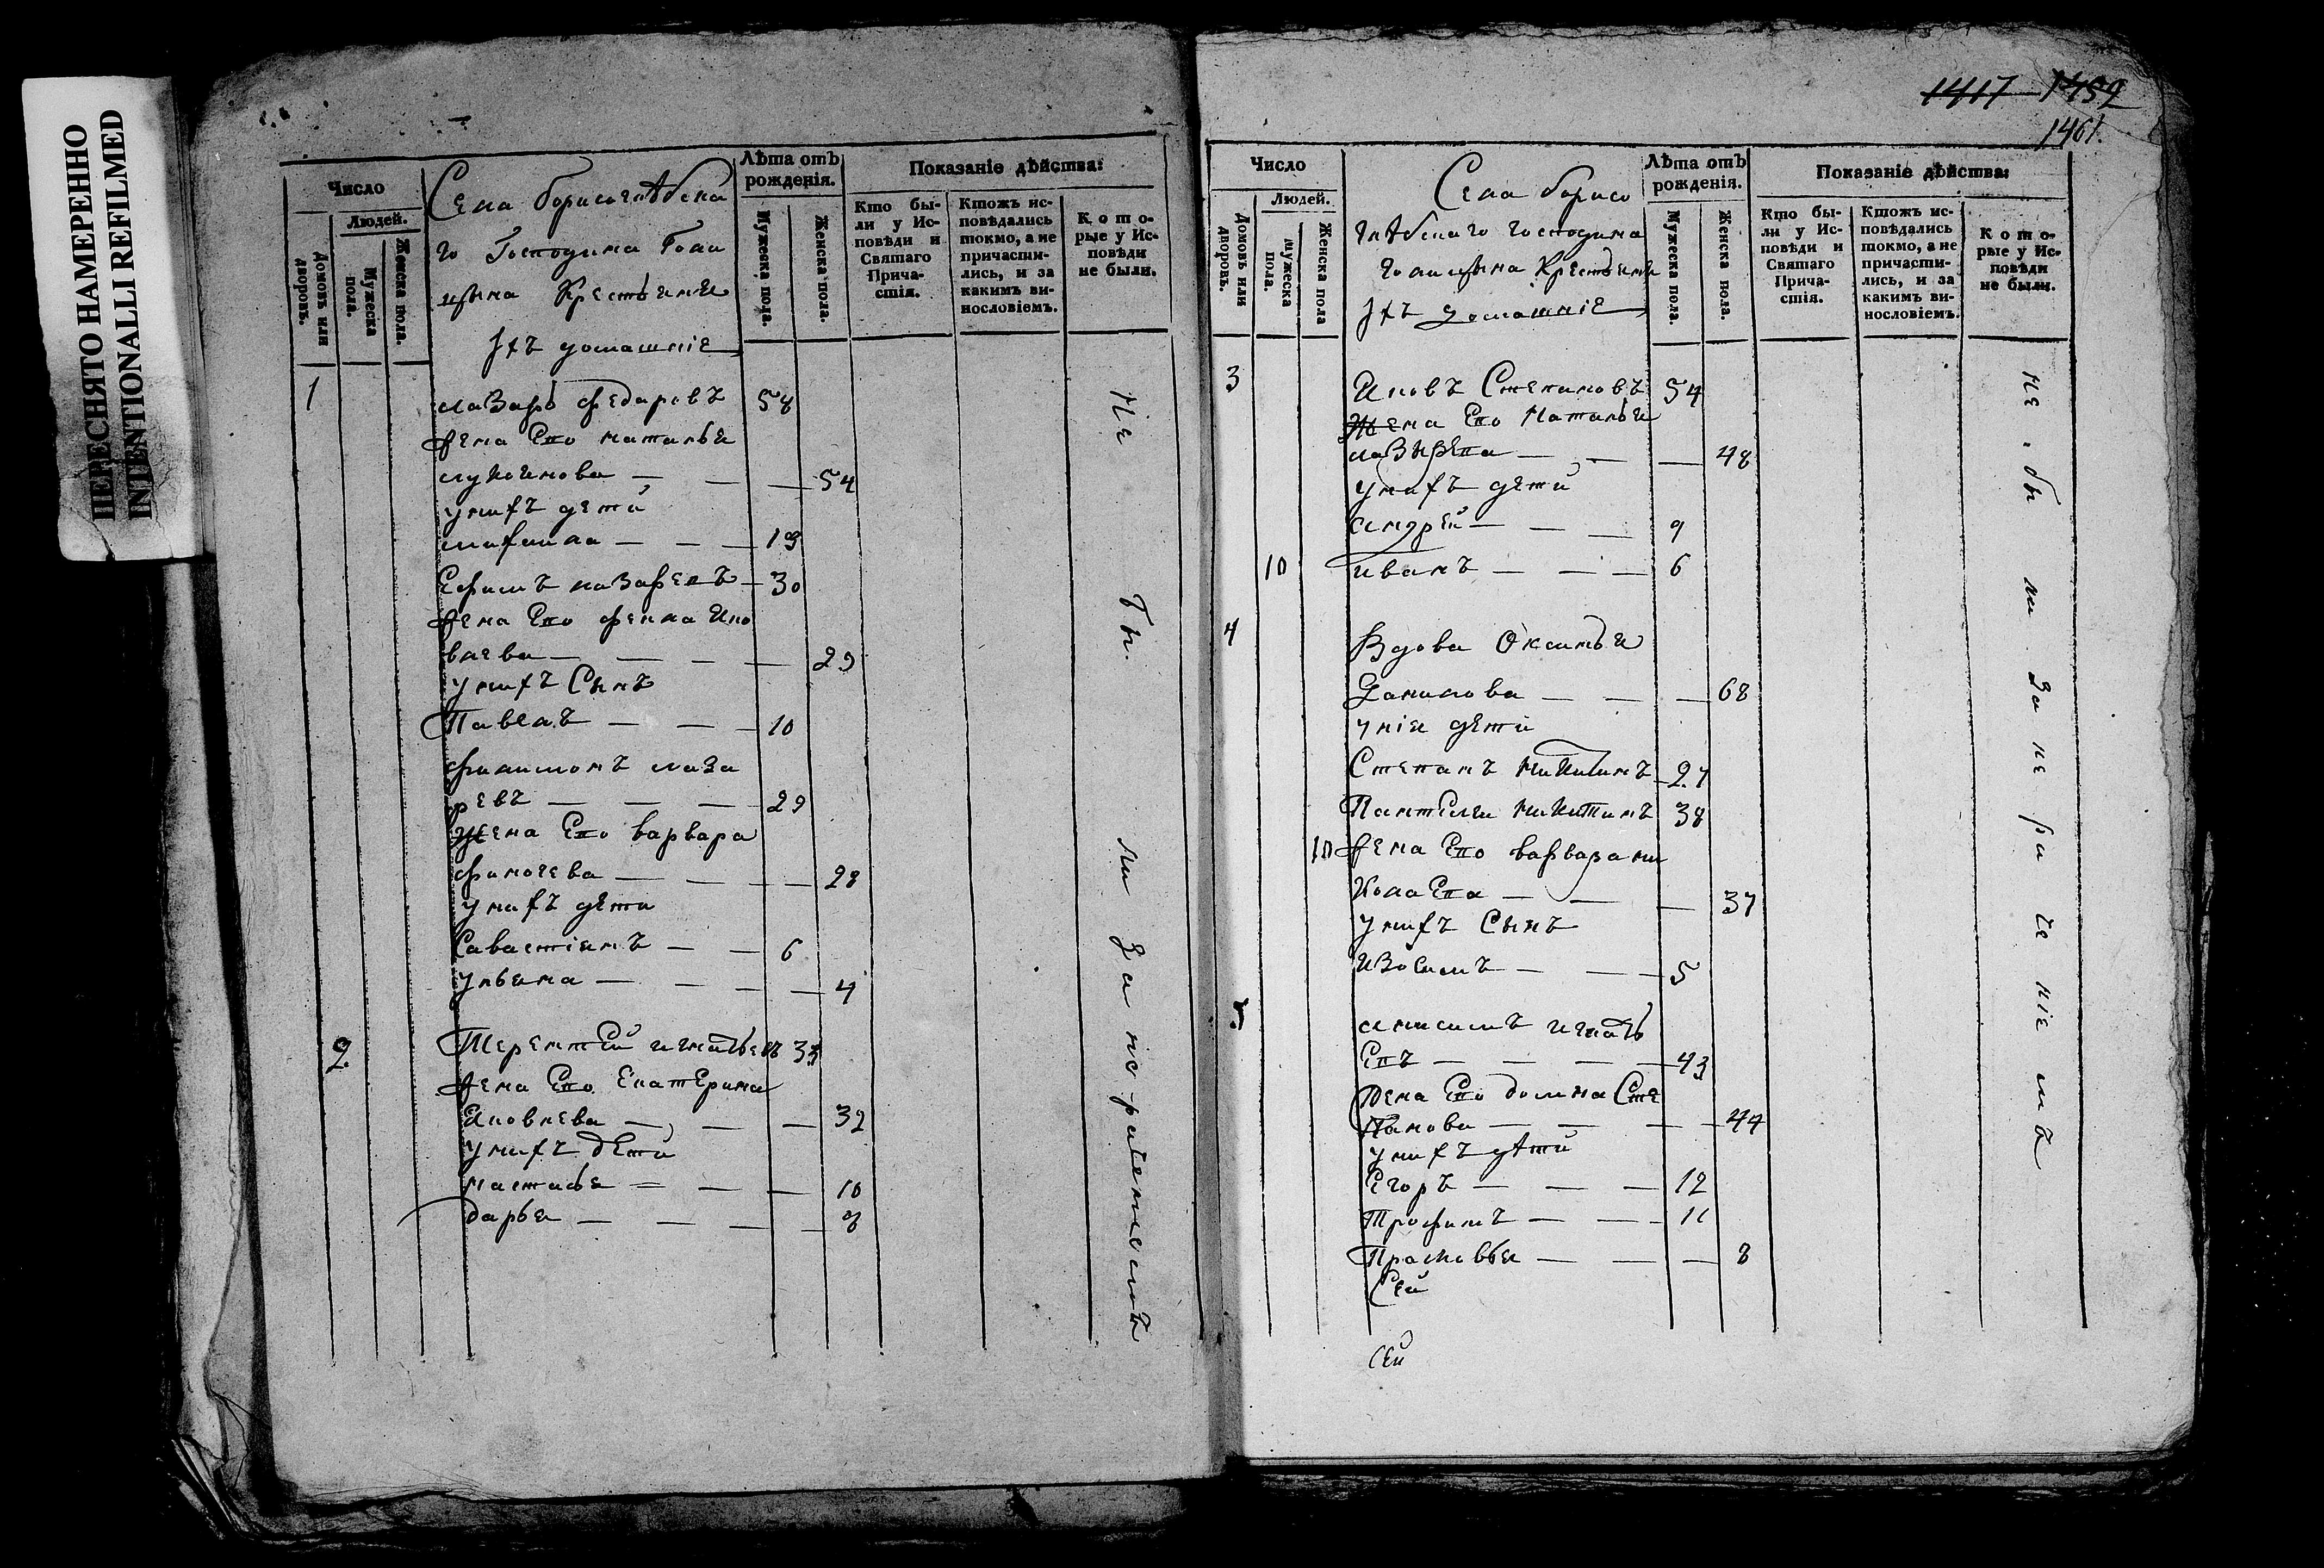 ПЕРЕСНЯТО НАМЕРЕННО
INTENTIONALLI REFILMED
Число
Людей.
Домовъ или дворовъ.
Мужеска пола.
Женска пола.
Села борисоглѣбска
го Господина Гали
цына Крестьяня
Ихъ домашніе
Лѣта отъ рожденія.
Мужеска пола.
Женска пола.
Показаніе дѣйства:
Кто бы-
ли у Ис-
повѣди и
Святаго
Прича-
стія.
Ктожъ ис-
повѣдались
токмо, а не
причасти-
лись, и за
какимъ ви-
нословіемъ.
К о т о-
рые у Ис-
повѣди
не были.
1 лазарь федаровъ 58
жена Его наталья
лукоянова — — — 54
унихъ дети
михаила — — — 19
Ефимъ лазаревъ — 30
жена Его фекла Яко
влева — — — — 29
унихъ Сынъ
Павелъ — — — 10
филимонъ лаза
ревъ — — — 29
жена Его варвара
фимочева — — — — 28
унихъ дети
Савастіянъ — — 6
ульяна — — — — 4
2 Терентей игнатьевъ 33
жена Его Екатерина
Яковлева — — — 32
унихъ дети
настасья — — — 10
дарья — — — — 8
Не бы ли за нерачениемъ
1417 1459
1461.
Число
Людей.
Домовъ или дворовъ.
мужеска пола.
Женска пола
Села борисо
глѣбскаго господина
Галицына Крестьяня
Ихъ домашніе
Лѣта отъ рожденія.
Мужеска пола.
Женска пола.
Показаніе дѣйства:
Кто бы-
ли у Ис-
повѣди и
Святаго
Прича-
стія.
Ктожъ ис-
повѣдались
токмо, а не
причасти-
лись, и за
какимъ ви-
нословіемъ.
К о т о-
рые у Ис-
повѣди
не были.
3 Яковъ Степановъ 54
Жена Его Наталья
лазырева — — — 48
унихъ дети
андрей — — — 9
10 иванъ — — — 6
4 Вдова Оксинья
Данилова — — — 68
унія дети
Степанъ никитинъ 27
Пантелеи никитинъ 38
10 жена Его варвара ни
колаева — — — 37
унихъ Сынъ
изосимъ — — — 5
5 анисимъ игнать
евъ — — — — 43
жена Его домна Сте
панова — — — — 44
унихъ дѣти
Егоръ — — — 12
трофимъ — — — 11
Прасковья — — — 8
Сей
Сей
не бы ли за не ра че ніе мъ